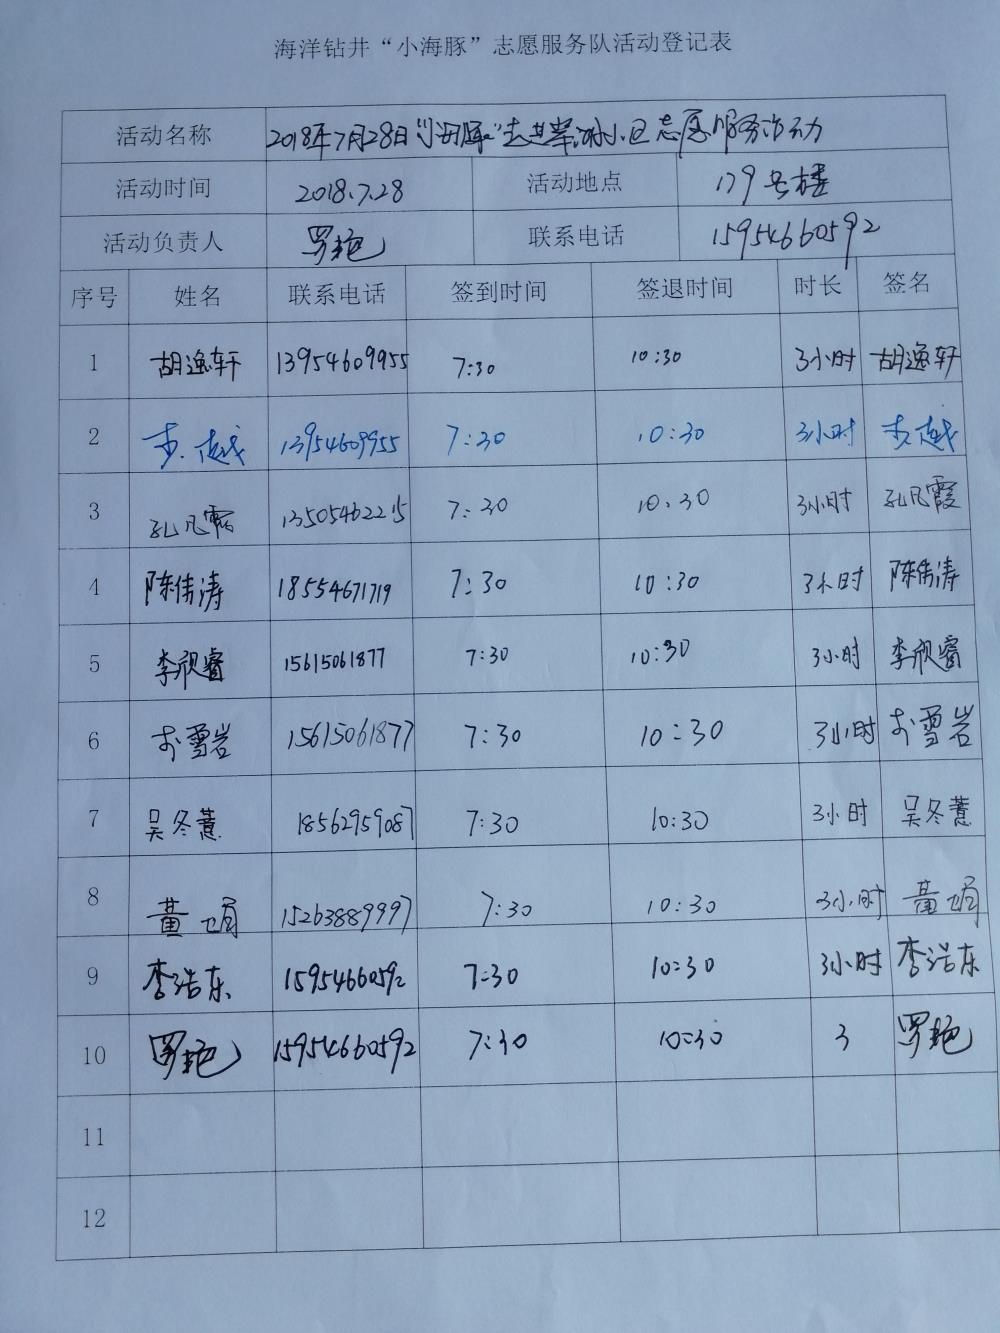 海洋钻井“小海豚”志愿服务队活动登记表
活动名称 2018年7月28日“小海豚”走进 小区志愿服务活动
活动时间 2018.7.28 活动地点 179号楼
活动负责人 罗艳 联系电话 15954660592
序号 姓名 联系电话 签到时间 签退时间 时长 签名
1 胡逸轩 13954609955 7:30 10:30 3小时 胡逸轩
2 李越 13954609955 7:30 10:30 3小时 李越
3 孔凡霞 13505462215 7:30 10:30 3小时 孔凡霞
4 陈伟涛 18554671719 7:30 10:30 3小时 陈伟涛
5 李欣睿 15615061877 7:30 10:30 3小时 李欣睿
6 雪岩 15615061877 7:30 10:30 3小时 雪岩
7 吴冬薏 18562959087 7:30 10:30 3小时 吴冬薏
8 董娟 15263889997 7:30 10:30 3小时 董娟
9 李浩东 15954660592 7:30 10:30 3小时 李浩东
10 罗艳 15954660592 7:30 10:30 3 罗艳
11
12